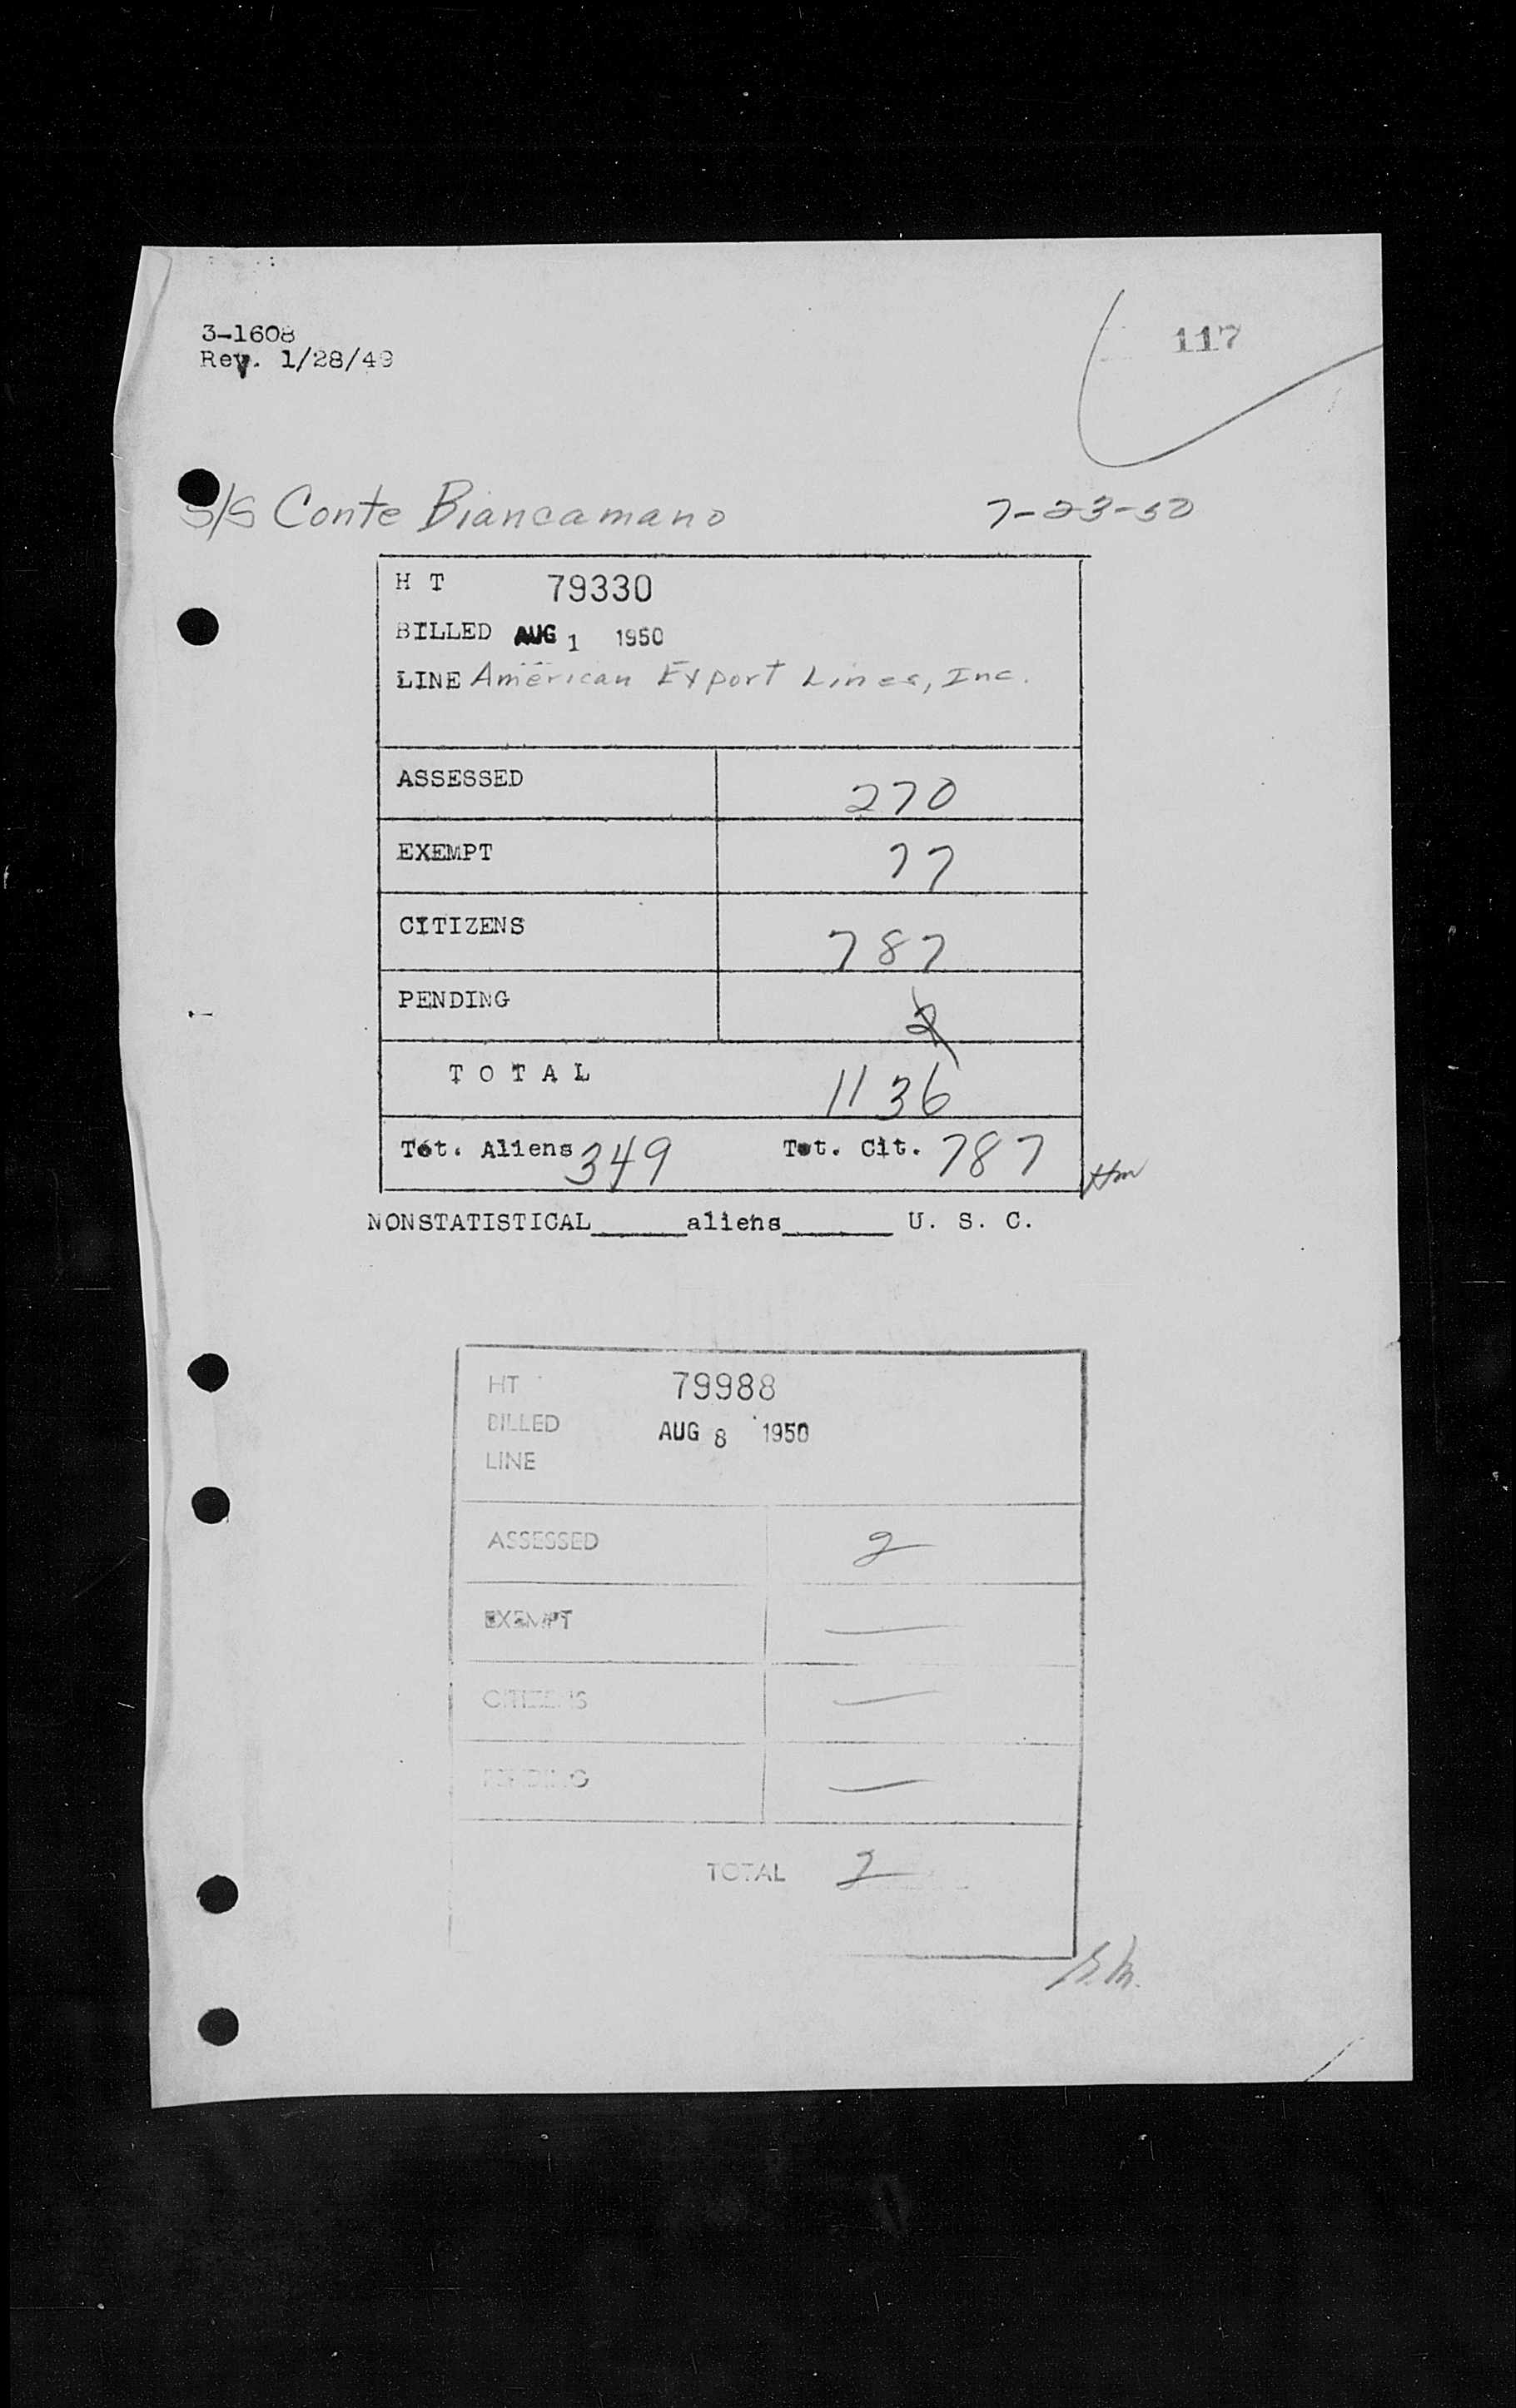 3-1608
Rev. 1/28/49
117
S/S Conte Biancamano 7-23-50
H T 79330
BILLED AUG 1 1950
LINE American Export Lines, Inc.
ASSESSED 270
EXEMPT 77
CITIZENS 787
PENDING 2
T O T A L 1136
Tot. Aliens 349 Tot. Cit. 787
NONSTATISTICAL_____aliens______ U. S. C.
HT 79988
BILLED AUG 8 1950
LINE
ASSESSED 2
EXEMPT —
CITIZENS —
PENDING —
TOTAL 2